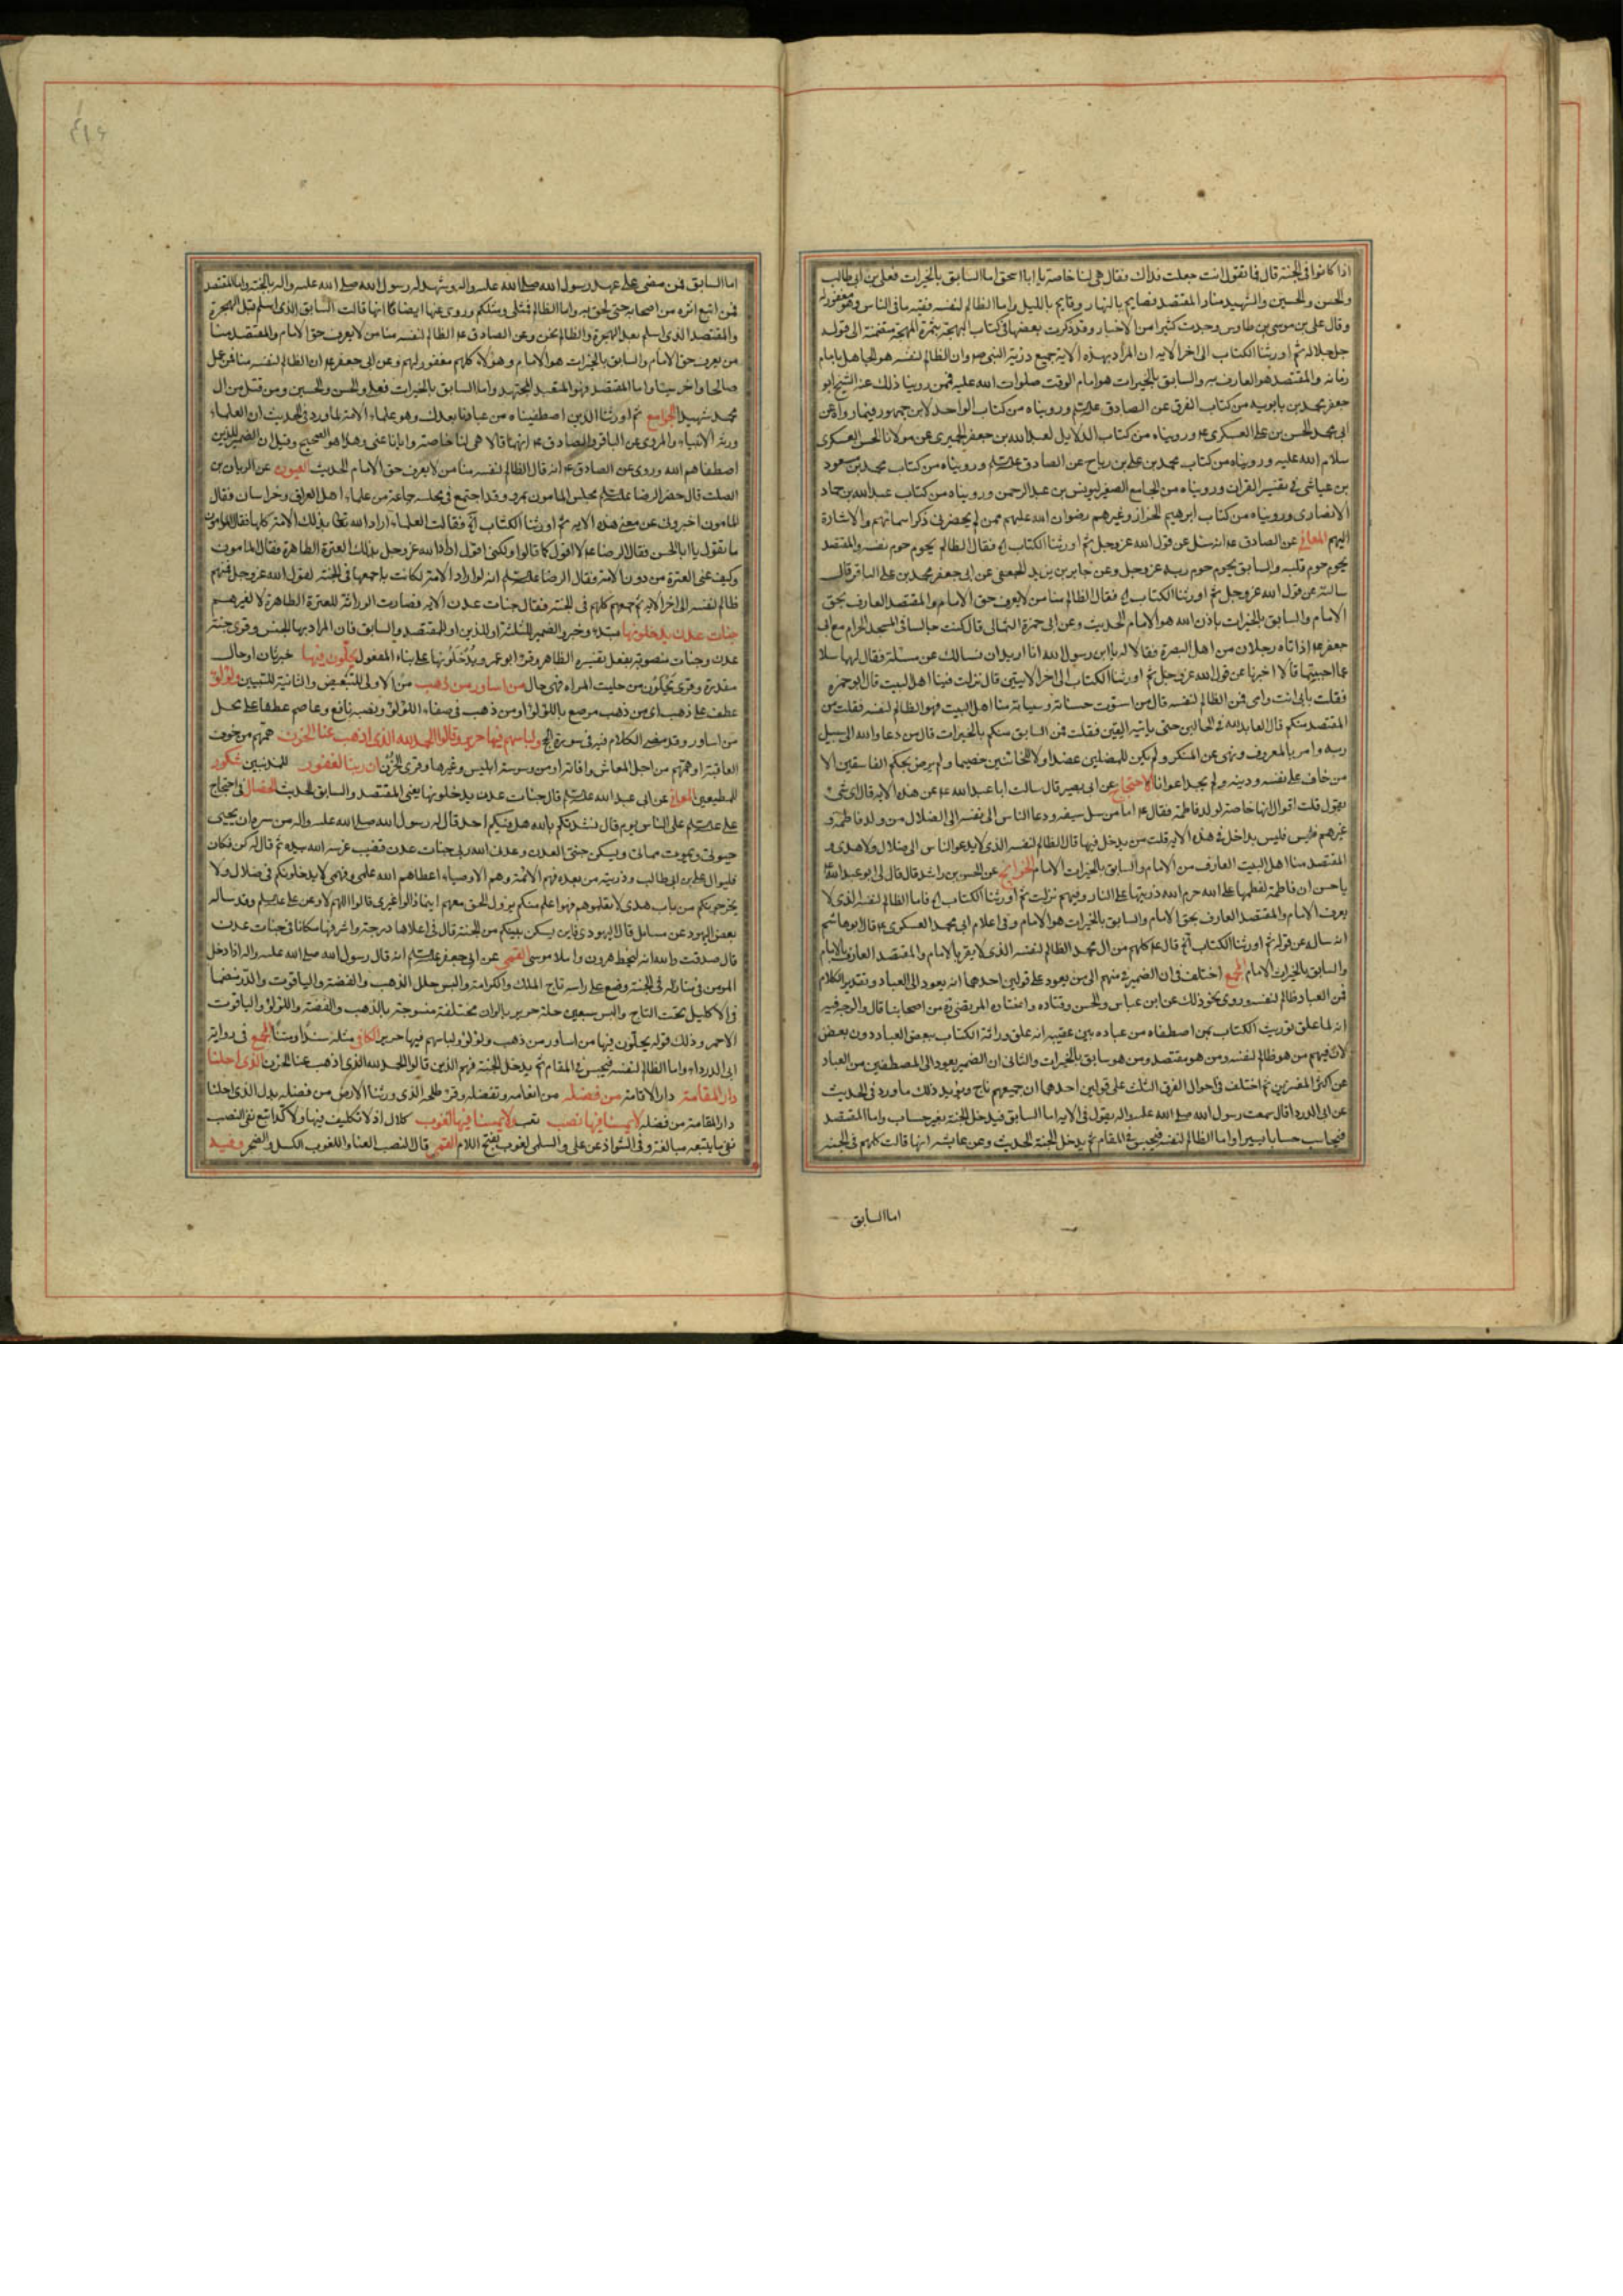 اذا كانوا فى الجنة قال فما تقول انت جعلت فداك فقال هى لنا خاصة يا ابا اسحق اما السابق بالخيرات فعلى بن ابى طالب
والحسن والحسين والشهيد منا والمقتصد فصايم بالنهار وقايم بالليل واما الظالم لنفسه ففيه ما فى الناس وهو مغفور له
وقال على بن موسى بن طاوس وجدت كثيرا من الاخبار وقد ذكرت بعضها فى كتاب البهجة بثمرة المهجة متضمنة الى قوله
جل جلاله ثم اورثنا الكتاب الى اخر الايه ان المراد بهذه الاية جميع ذرية النبى ص وان الظالم لنفسه هو الجاهل بامام
زمانه والمقتصد هو العارف به والسابق بالخيرات هو امام الوقت صلوات الله عليه فمن روينا ذلك عنه الشيخ ابو
جعفر محمد بن بابويه من كتاب الفرق عن الصادق عليه السلام ورويناه من كتاب الواحد لابن جمهور فيما رواه عن
ابى محمد الحسن بن على العسكرى ع ورويناه من كتاب الدلايل لعبد الله بن جعفر الحميرى عن مولانا الحسن العسكرى
سلام الله عليه ورويناه من كتاب محمد بن على بن رياح عن الصادق عليه السلام ورويناه من كتاب محمد بن مسعود
بن عياشى فى تفسير القران ورويناه من الجامع الصغير ليونس بن عبد الرحمن ورويناه من كتاب عبد الله بن حماد
الانصارى ورويناه من كتاب ابرهيم الخزاز وغيرهم رضوان الله عليهم ممن لم يحضرنى ذكر اسمائهم والاشارة
اليهم المعانى عن الصادق ع انه سئل عن قول الله عز وجل ثم اورثنا الكتاب فقال الظالم يحوم حوم نفسه والمقتصد
يحوم حوم قلبه والسابق يحوم حوم ربه عز وجل وعن جابر بن يزيد الجعفى عن ابى جعفر محمد بن على الباقر قال
سالته عن قول الله عز وجل ثم اورثنا الكتاب فقال الظالم منا من لا يعرف حق الامام والمقتصد العارف بحق
الامام والسابق بالخيرات باذن الله هو الامام الحديث وعن ابى حمزة الثمالى قال كنت جالسا فى المسجد الحرام مع ابى
جعفر ع اذ اتاه رجلان من اهل البصرة فقالا له يا ابن رسول الله انا نريد ان نسالك عن مسئلة فقال لهما سلا
عما احببتما قالا اخبرنا عن قول الله عز وجل ثم اورثنا الكتاب الى اخر الايتين قال نزلت فينا اهل البيت قال ابو حمزه
فقلت بابى انت وامى فمن الظالم لنفسه قال من استوت حسناته وسياته منا اهل البيت فهو الظالم لنفسه فقلت من
المقتصد منكم قال العابد لله فى الحالين حتى ياتيه اليقين فقلت فمن السابق منكم بالخيرات قال من دعا والله الى سبيل
ربه وامر بالمعروف ونهى عن المنكر ولم يكن للمضلين عضدا ولا للخائنين خصيما ولم يرض بحكم الفاسقين الا
من خاف على نفسه ودينه ولم يجد اعوانا الاحتجاج عن ابى بصير قال سالت ابا عبد الله ع عن هذه الاية قال اى شئ
تقول قلت اقول انها خاصة لولد فاطمة فقال ع اما من سل سيفه ودعا الناس الى نفسه الى الضلال من ولد فاطمة و
غيرهم فليس بداخل فى هذه الاية قلت من يدخل فيها قال الظالم لنفسه الذى لا يدعو الناس الى ضلال ولا هدى و
المقتصد منا اهل البيت العارف من الامام والسابق بالخيرات الامام الخرائج عن الحسن بن راشد قال قال لى ابو عبد الله ع
يا حسن ان فاطمة لعظمها على الله حرم الله ذريتها على النار وفيهم نزلت ثم اورثنا الكتاب فاما الظالم لنفسه الذى لا
يعرف الامام والمقتصد العارف بحق الامام والسابق بالخيرات هو الامام وفى اعلام ابى محمد العسكرى ع قال ابو هاشم
انه ساله عن قوله ثم اورثنا الكتاب قال ع كلهم من ال محمد الظالم لنفسه الذى لا يقر بالامام والمقتصد العارف بالامام
والسابق بالخيرات الامام المجمع اختلف فى ان الضمير فى منهم الى من يعود على قولين احدهما انه يعود الى العباد وتقدير الكلام
فمن العباد ظالم لنفسه وروى نحو ذلك عن ابن عباس والحسن وقتاده واختاره المرتضى ره من اصحابنا قال والوجه فيه
انه لما علق توريث الكتاب بمن اصطفاه من عباده بين عقيبه انه علق وراثة الكتاب ببعض العباد دون بعض
لان فيهم من هو ظالم لنفسه ومن هو مقتصد ومن هو سابق بالخيرات والثانى ان الضمير يعود الى المصطفين من العباد
عن اكثر المفسرين ثم اختلف فى احوال الفرق الثلث على قولين احدهما ان جميعهم ناج ويؤيد ذلك ما ورد فى الحديث
عن ابى الدردا قال سمعت رسول الله صلى الله عليه واله يقول فى الايه اما السابق فيدخل الجنة بغير حساب واما المقتصد
فيحاسب حسابا يسيرا واما الظالم لنفسه فيحبس فى المقام ثم يدخل الجنة الحديث وعن عايشه انها قالت كلهم فى الجنة
اما السابق
اما السابق فمن مضى على عهد رسول الله صلى الله عليه واله وشهد له رسول الله صلى الله عليه واله بالجنة واما المقتصد
فمن اتبع اثره من اصحابه حتى لحق به واما الظالم فمثلى ومثلكم وروى عنها ايضا انها قالت السابق الذى اسلم قبل الهجرة
والمقتصد الذى اسلم بعد الهجرة والظالم نحن وعن الصادق ع الظالم لنفسه منا من لا يعرف حق الامام والمقتصد منا
من يعرف حق الامام والسابق بالخيرات هو الامام وهؤلاء كلهم مغفور لهم وعن ابى جعفر ع ان الظالم لنفسه منا فمن عمل
صالحا واخر سيئا واما المقتصد فهو المتعبد المجتهد واما السابق بالخيرات فعلى والحسن والحسين ومن قتل من ال
محمد شهيدا الجوامع ثم اورثنا الذين اصطفيناه من عبادنا بعدك وهو علماء الامة لما ورد فى الحديث ان العلماء
ورثة الانبياء والمروى عن الباقر والصادق ع انهما قالا هى لنا خاصة وايانا عنى وهذا هو الصحيح وقيل ان الضمير للذين
اصطفاهم الله وروى عن الصادق ع انه قال الظالم لنفسه منا من لا يعرف حق الامام الحديث العيون عن الريان بن
الصلت قال حضر الرضا عليه السلام مجلس المامون بمرو وقد اجتمع فى مجلسه جماعة من علماء اهل العراق وخراسان فقال
المامون اخبرونى عن معنى هذه الاية ثم اورثنا الكتاب فقالت العلماء اراد الله تعالى بذلك الامة كلها فقال المامون
ما تقول يا ابا الحسن فقال الرضا ع لا اقول كما قالوا ولكنى اقول اراد الله عز وجل بذلك العترة الطاهرة فقال المامون
وكيف عنى العترة من دون الامة فقال الرضا عليه السلام انه لو اراد الامة لكانت باجمعها فى الجنة لقول الله عز وجل فمنهم
ظالم لنفسه الى اخر الاية ثم جمعهم كلهم فى الجنة فقال جنات عدن الاية فصارت الوراثة للعترة الطاهرة لا لغيرهم
جنات عدن يدخلونها مبتدء وخبر والضمير للثلثة او للذين او للمقتصد والسابق فان المراد بهما الجنس وقرى جنة
عدن وجنات منصوبة بفعل يفسره الظاهر وقرء ابو عمرو يُدْخَلُونَها على بناء المفعول يحلون فيها خبر ثان او حال
مقدرة وقرى يَحْلَوْن من حليت المراه فهى حال من اساور من ذهب من الاولى للتبعيض والثانية للتبيين ولؤلؤ
عطف على ذهب اى من ذهب مرصع باللؤلؤ او من ذهب فى صفاء اللؤلؤ ونصبه نافع وعاصم عطفا على محل
من اساور وقد مضى الكلام فيه فى سورة الحج ولباسهم فيها حرير وقالوا الحمد لله الذى اذهب عنا الحزن همهم من خوف
العاقبة او همهم من اجل المعاش وافاته او من وسوسة ابليس وغيرها وقرى الحُزْن ان ربنا لغفور للمذنبين شكور
للمطيعين المعانى عن ابى عبد الله عليه السلام قال جنات عدن يدخلونها يعنى المقتصد والسابق الحديث الخصال فى احتجاج
على عليه السلام على الناس يوم قال نشدتكم بالله هل فيكم احد قال له رسول الله صلى الله عليه واله من سره ان يحيى
حيوتى ويموت مماتى ويسكن جنتى العدن وعدنى الله ربى جنات عدن قضيب غرسه الله بيده ثم قال له كن فكان
فليوال على بن ابى طالب وذريته من بعده فهم الائمة وهم الاوصياء اعطاهم الله علمى وفهمى لا يدخلونكم فى ضلال ولا
يخرجونكم من باب هدى لا تعلموهم فهم اعلم منكم يزول الحق معهم اينما زالوا غيرى قالوا اللهم لا وعن على عليه السلم وقد ساله
بعض اليهود عن مسايل قال اليهودى فاين يسكن نبيكم من الجنة قال فى اعلاها درجة واشرفها مكانا فى جنات عدن
قال صدقت والله انه لبخط هرون واملا موسى القمى عن ابى جعفر عليه السلام انه قال رسول الله صلى الله عليه واله اذا دخل
المومن فى منازله فى الجنة وضع على راسه تاج الملك والكرامة والبس حلل الذهب والفضة والياقوت والدر منضما
فى الاكليل تحت التاج والبس سبعين حلة حرير بالوان مختلفة منسوجة بالذهب والفضة واللؤلؤ والياقوت
الاحمر وذلك قوله يحلون فيها من اساور من ذهب ولؤلؤ ولباسهم فيها حرير الكافى مثله سندا ومتنا المجمع فى رواية
ابى الدرداء واما الظالم لنفسه فيحبس فى المقام ثم يدخل الجنة فهم الذين قالوا الحمد لله الذى اذهب عنا الحزن الذى احلنا
دار المقامة دار الاقامة من فضله من انعامه وتفضله وقرء طلحه الذى ورثنا الارض من فضله بدل الذى احلنا
دار المقامة من فضله لا يمسنا فيها نصب تعب ولا يمسنا فيها لغوب كلال اذ لا تكليف فيها ولا كد اتبع نفى النصب
نفى ما يتبعه مبالغة وفى الشواذ عن على والسلمى لغوب بفتح اللام القمى قال النصب العنا واللغوب الكسل والضجر وفيه